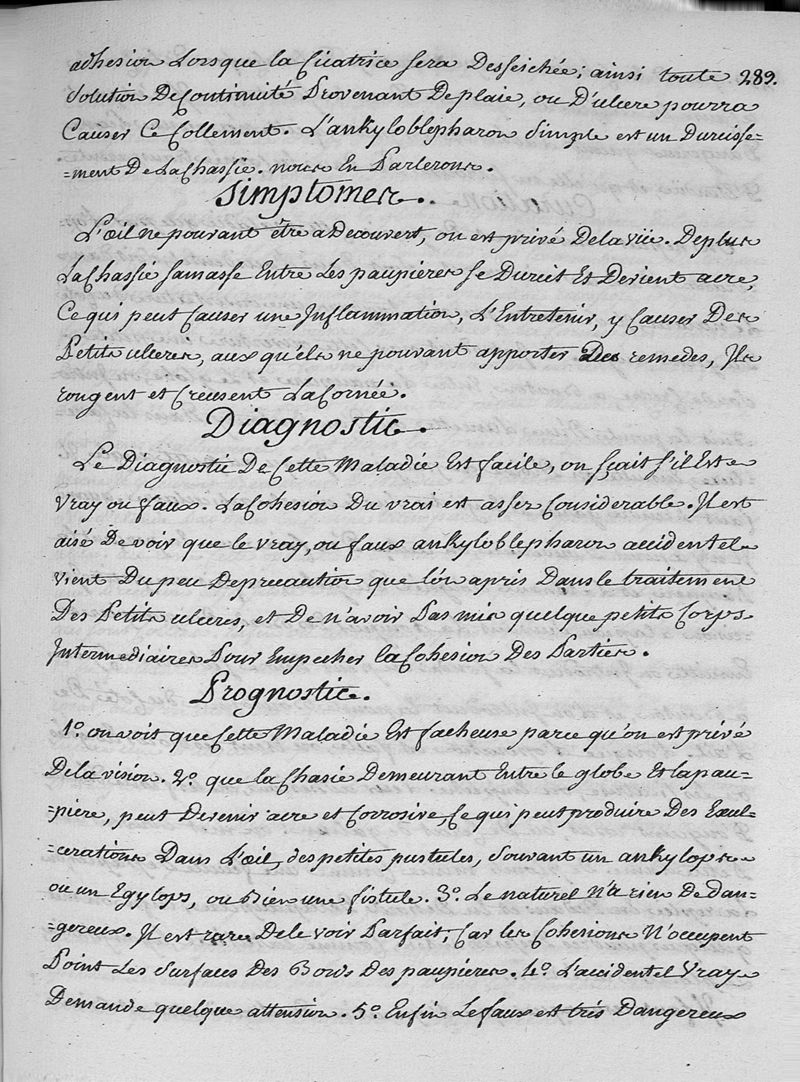 adhesion Lorsque la Cicatrice sera Desseichée; ainsi toute 289.
Solution De Continuité Provenant De plaie, ou D'ulcere pourra
Causer Ce Collement. L'ankyloblepharon Simple est un Durcisse-
-ment De La Chassie. nous En Parlerons.
Simptomes.
L'œil ne pouvant être a Decouvert, on est privé De la vüe. De plus
La Chassie s'amasse Entre Les paupieres se Durcit Et Devient acre,
Ce qui peut Causer une Inflammation, L'Entretenir, y Causer Des
Petits ulceres, aux quéls ne pouvant apporter Des remedes, Ils
rongent et Creusent La Cornée.
Diagnostic.
Le Diagnostic De Cette Maladie Est facile, on sçait s'il Est
Vray ou faux. La Cohesion Du vrai est assez Considerable. Il est
aisé De voir que le vray, ou faux ankyloblepharon accidentel
vient Du peu De precaution que l'on a pris Dans le traitement
Des Petits ulceres, et De n'avoir Pas mis quelque petits Corps
Intermediaires Pour Empecher la Cohesion Des Parties.
Prognostic.
1.o on voit que Cette Maladie Est facheuse parce qu'on est privé
De la vision. 2.o que la Chasie Demeurant Entre le globe Et la pau-
-piere, peut Devenir acre et Corrosive, Ce qui peut produire Des Exul-
-cerations Dans L'œil, des petites pustules, Souvant un ankylops
ou un Egylops, ou Bien une fistule. 3.o Le naturel N'a rien De Dan-
-gereux. Il est rare De le voir Parfait, Car les Cohesions N'occupent
Point Les Surfaces Des Bords Des paupieres. 4.o L'accidentel Vray
Demande quelque attension. 5.o Enfin Le faux est trés Dangereux